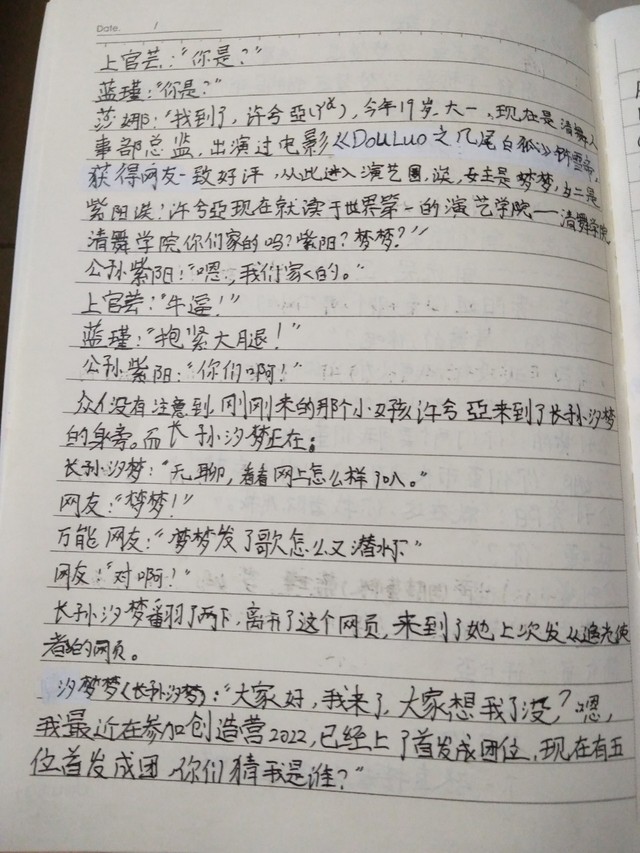 Date. 1
上官芸:"你是?"
蓝瑾:"你是?"
莎娜:"找到了,许兮亞(yà),今年19岁,大一、现在是清舞人
事部总监,出演过电影《DouLuo之九尾白狐》
获得网友一致好评,从此进入演艺圈,诶,女主是梦梦,女二是
紫阳诶!许兮亞现在就读于世界第一的演艺学院——清舞学院
清舞学院你们家的吗?紫阳?梦梦?"
公孙紫阳:"嗯,我们家的。"
上官芸:"牛逼!"
蓝瑾:"抱紧大腿!"
公孙紫阳:"你们啊!"
众人没有注意到,刚刚来的那个小女孩许兮亞来到了长孙汐梦
的身旁。而长孙汐梦正在:
长孙汐梦:"无聊,看看网上怎么样了。"
网友:"梦梦!"
万能网友:"梦梦发了歌怎么又潜水"
网友:"对啊!"
长孙汐梦翻了两下,离开了这个网页,来到了她上次发《追光使
者》的网页。
汐梦梦(长孙汐梦):"大家好,我来了,大家想我了没?嗯,
我最近在参加创造营2022,已经上了首发成团位,现在有五
位首发成团,你们猜我是谁?"